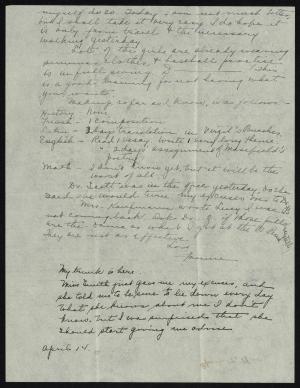 myself do so. Today I am not much better,
but I shall take it very easy. I do hope it
is only from travel & the necessary
walking yesterday.
Lots of the girls are already wearing
summer clothes, & baseball practice
is in full swing. I
is a good training for not having what
your wants.
making so far as I know, was follows -
History - None
French - 1 Composition
Latin - 3 days translation in Virgil's Bucolics.
English - Read 1 essay, write 1 very long theme,
& 2 days assignment of Masefield's
Poetry
Math - I don't know yet, but it will be the
worst of all.
Dr. Scott was in the office yesterday so she
said she would
Mrs.
not coming back. Ask Dr. G. if these pills
are the same as what I got at the
They are not as effective.
Love,
My trunk is here.
Miss Smith just gave me my excuses, and
she told me to be sure to lie down every day
What she knows about me I don't
know. but I was surprised that she
should start giving me advice.
April 14.